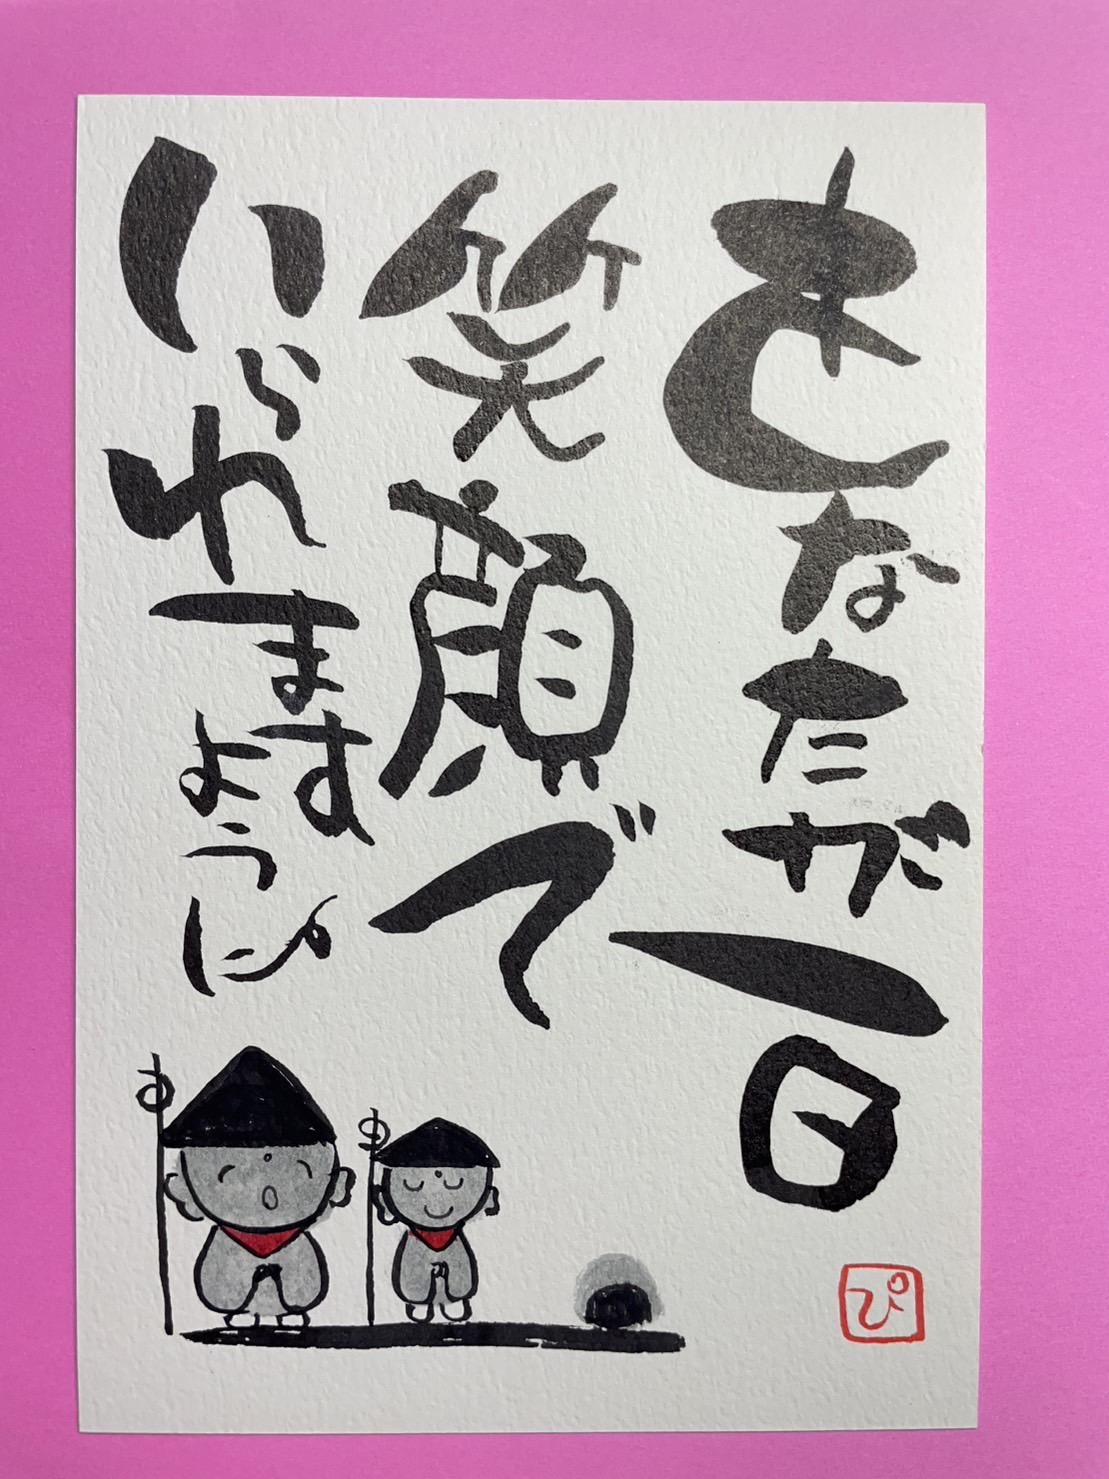 あなたが一日
笑顔で
いられますように
ぴ